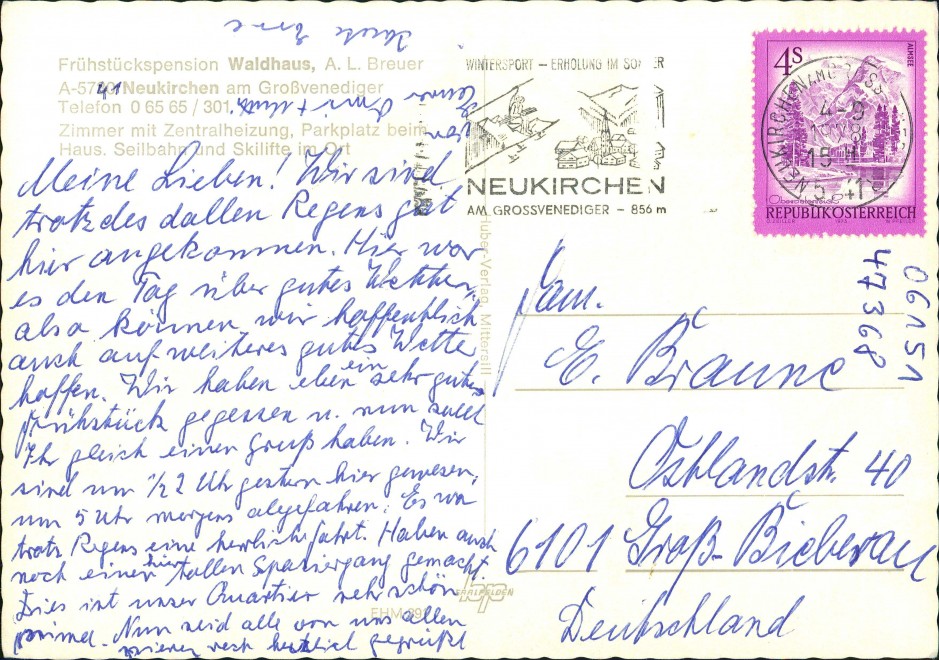 Frühstückspension Waldhaus, A. L. Breuer
A-5741 Neukirchen am Großvenediger
Telefon 0 65 65 / 301
Zimmer mit Zentralheizung, Parkplatz beim
Haus. Seilbahn und Skilifte im Ort
Meine Lieben! Wir sind
trotz des dallen Regens gut
hier angekommen. Hier war
es den Tag über gutes Wetter,
also können wir hoffentlich
auch auf weiteres gutes Wetter
hoffen. Wir haben eben ein sehr gutes
Frühstück gegessen u. nun sollt
Ihr gleich einen Gruß haben. Wir
sind um 1/2 2 Uhr gestern hier gewesen,
um 5 Uhr morgens abgefahren. Es war
trotz Regens eine herrliche Fahrt. Haben auch
noch einen tollen Spaziergang gemacht.
Dies ist unser Quartier sehr schön
prima. Nun seid alle von uns allen
recht herzlich gegrüßt
WINTERSPORT – ERHOLUNG IM SOMMER
NEUKIRCHEN
AM GROSSVENEDIGER – 856 m
4S
ALMSEE
Oberösterreich
REPUBLIK ÖSTERREICH
5741
Huber-Verlag, Mittersill
Fam.
E. Braune
Ostlandstr. 40
6101 Groß-Bieberau
Deutschland
06151
47368